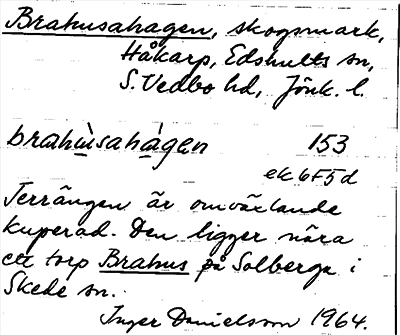 Brahusahagen, skogsmark,
Håkarp, Edshults sn,
S. Vedbo hd, Jönk. l.
brahùsahàgen 153
ek 6F5d
Terrängen är omväxlande
kuperad. Den ligger nära
ett torp Brahus på Solberga i
Skede sn.
Inger Danielsson 1964.